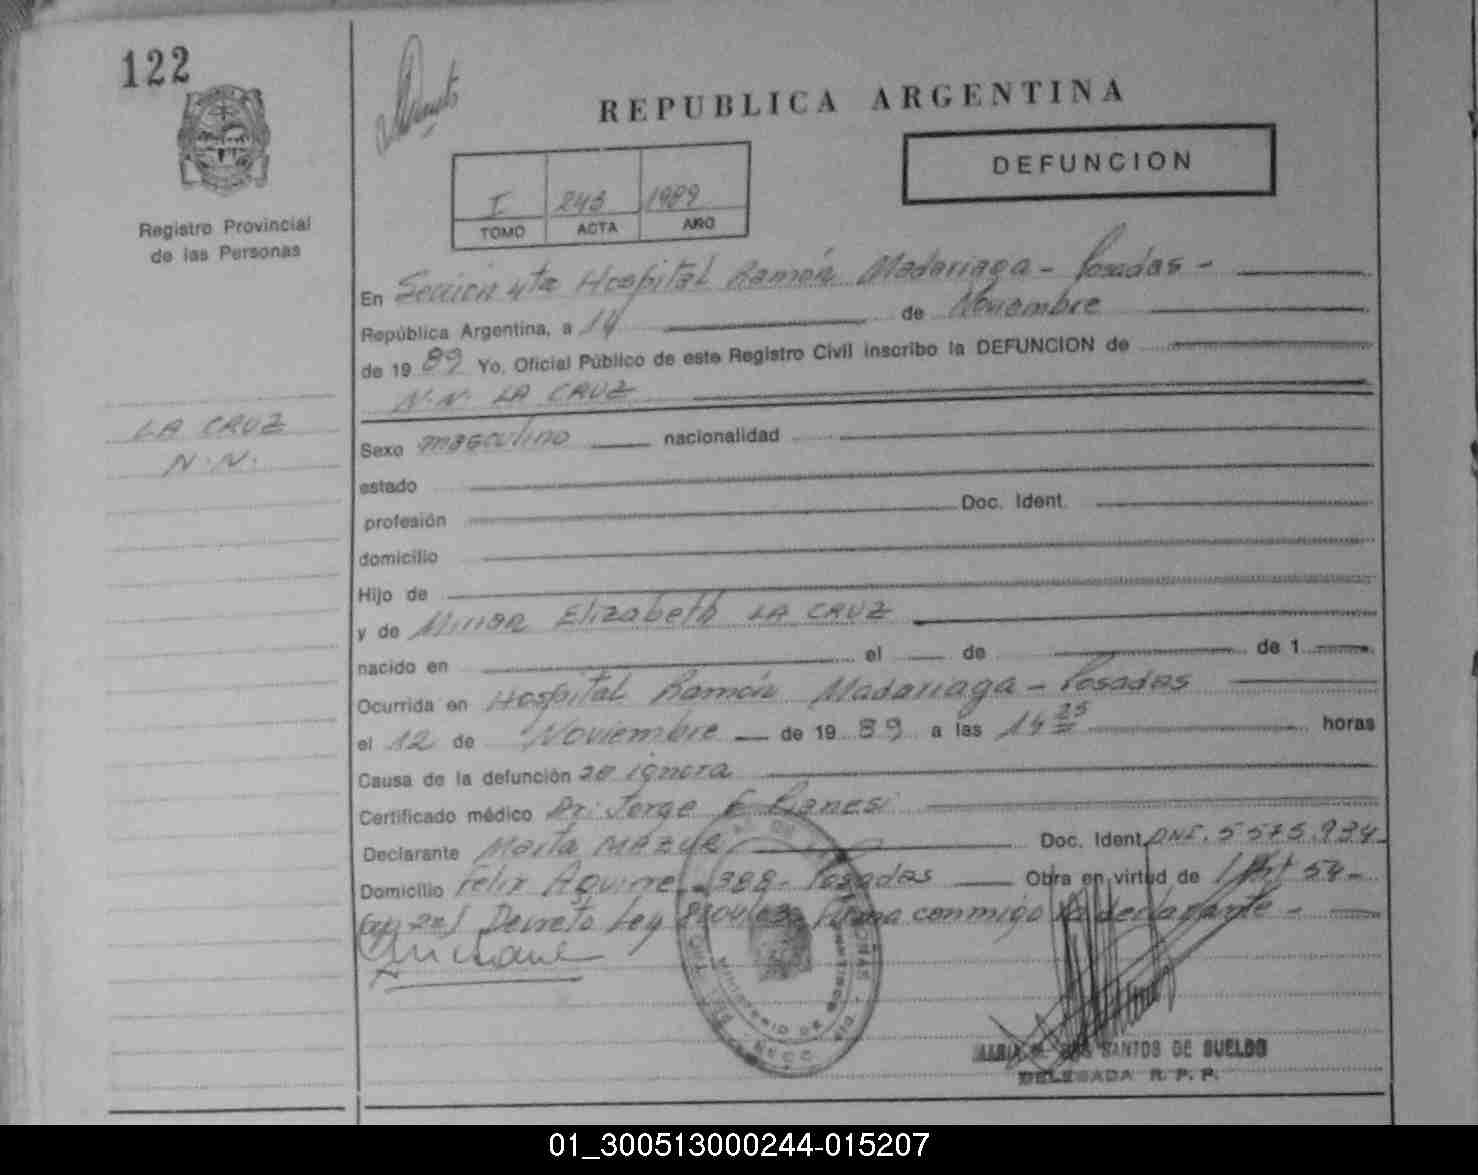 122
REPUBLICA ARGENTINA
DEFUNCION
Registro Provincial
de las Personas
I 243 1989
TOMO ACTA AÑO
En Seccion 4ta Hospital Ramón Madariaga - Posadas -
República Argentina, a 14 de Noviembre
de 1989 Yo, Oficial Público de este Registro Civil inscribo la DEFUNCION de
N.N. LA CRUZ
LA CRUZ
N.N.
Sexo masculino nacionalidad
estado
profesión Doc. Ident.
domicilio
Hijo de
y de Mirian Elizabeth LA CRUZ
nacido en el de de 1
Ocurrida en Hospital Ramón Madariaga - Posadas
el 12 de Noviembre de 1989 a las 14 25 horas
Causa de la defunción se ignora
Certificado médico Dr. Jorge E
Declarante Marta Doc. Ident. DNI. 5.575.934
Domicilio Felix Aguirre 388 - Posadas Obra en virtud de 54 -
Decreto Ley firma conmigo la declarante -
SANTOS DE SUELDO
DELEGADA R. P. P.
01_300513000244-015207